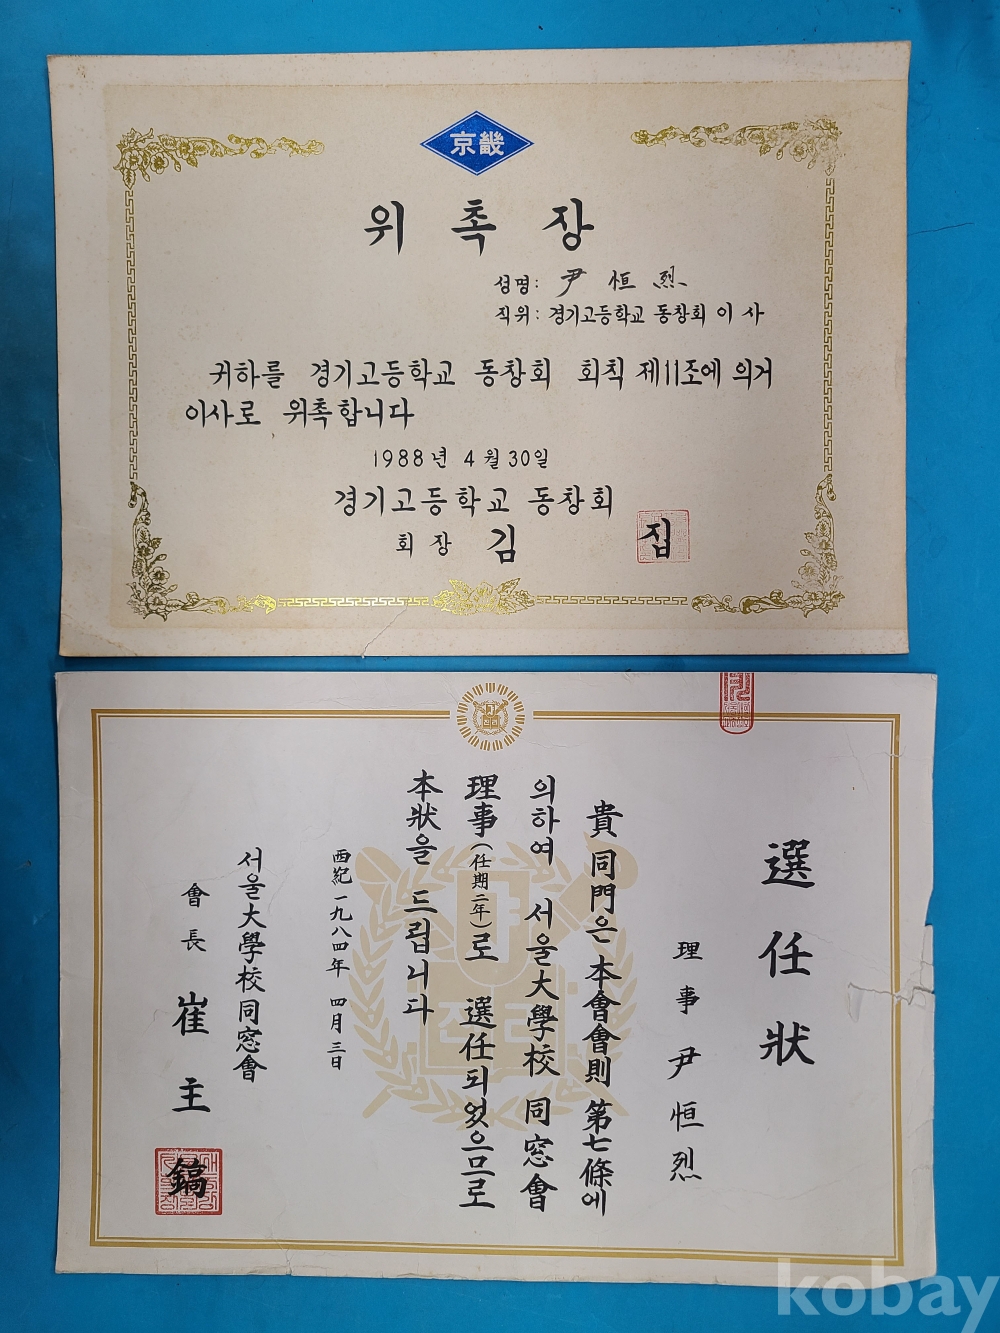 京畿
위촉장
성명: 尹恒烈
직위: 경기고등학교 동창회 이사
귀하를 경기고등학교 동창회 회칙 제11조에 의거
이사로 위촉합니다
1988년 4월 30일
경기고등학교 동창회
회장 김 집
選任狀
理事 尹恒烈
貴同門은 本會會則 第七條에
의하여 서울大學校 同窓會
理事(任期二年)로 選任되었으므로
本狀을 드립니다
西紀 一九八四年 四月 三日
서울大學校同窓會
會長 崔主鎬
kobay